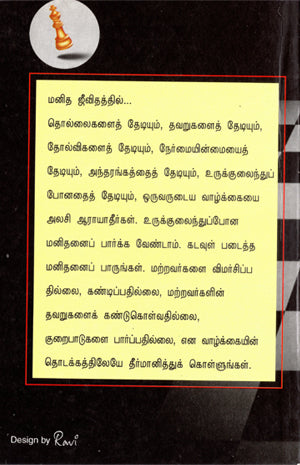 மனித ஜீவிதத்தில்...
தொல்லைகளைத் தேடியும், தவறுகளைத் தேடியும்,
தோல்விகளைத் தேடியும், நேர்மையின்மையைத்
தேடியும், அந்தரங்கத்தைத் தேடியும், உருக்குலைந்துப்
போனதைத் தேடியும், ஒருவருடைய வாழ்க்கையை
அலசி ஆராயாதீர்கள். உருக்குலைந்துப்போன
மனிதனைப் பார்க்க வேண்டாம். கடவுள் படைத்த
மனிதனைப் பாருங்கள். மற்றவர்களை விமர்சிப்ப
தில்லை, கண்டிப்பதில்லை, மற்றவர்களின்
தவறுகளைக் கண்டுகொள்வதில்லை,
குறைபாடுகளை பார்ப்பதில்லை, என வாழ்க்கையின்
தொடக்கத்திலேயே தீர்மானித்துக் கொள்ளுங்கள்.
Design by Ravi